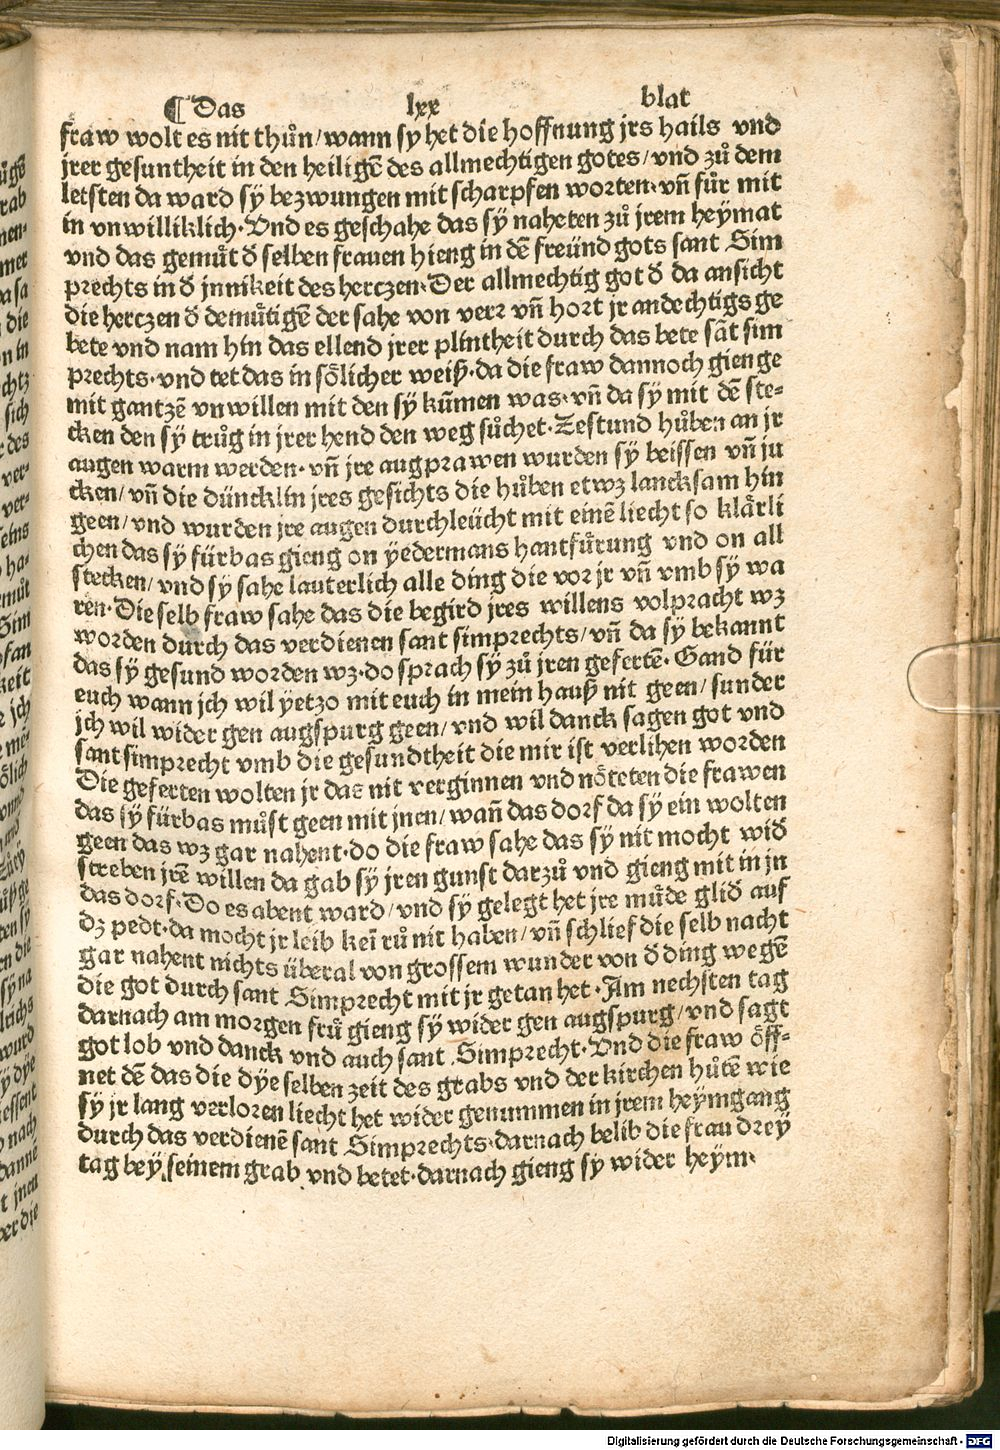 ¶ Das lxx blat
fraw wolt es nit thůn/ wann sy het die hoffnung jrs hails vnd
jrer gesuntheit in den heiligē des allmechtigen gotes/ vnd zů dem
letsten da ward sÿ bezwungen mit scharpfen worten· vñ fůr mit
in vnwilliklich· Vnd es geschahe das sÿ naheten zů jrem heymat
vnd das gemůt d̄ selben frauen hieng in dē freünd gots sant Sim
prechts in d̄ jnnikeit des herczen· Der allmechtig got d̄ da ansicht
die herczen d̄ demůtigē der sahe von verꝛ vñ hort jr andechtigs ge
bete vnd nam hin das ellend jrer plintheit durch das bete sāt sim
prechts· vnd tet das in sőlicher weiß· da die fraw dannoch gienge
mit gantzē vnwillen mit den sÿ kūmen was· vñ da sÿ mit dē ste⸗
cken den sÿ trůg in jrer hend den weg sůchet· Zestund hůben an jr
augen warm werden· vñ jre augprawen wurden sÿ beissen vñ ju
cken/ vñ die düncklin jres gesichts die hůben etwz lancksam hin
geen/ vnd wurden jre augen durchleücht mit einē liecht so klårli
chen das sÿ fürbas gieng on yedermans hantfůrung vnd on all
stecken/ vnd sy sahe lauterlich alle ding die vor jr vñ vmb sÿ wa
ren· Die selb fraw sahe das die begird jres willens volpracht wz
worden durch das verdienen sant simprechts/ vñ da sÿ bekannt
das sÿ gesund worden wz· do sprach sÿ zů jren gefertē· Gand für
euch wann jch wil yetzo mit euch in mein hauß nit geen/ sunder
jch wil wider gen augspurg geen/ vnd wil danck sagen got vnd
sant simprecht vmb die gesundtheit die mir ist verlihen worden
Die geferten wolten jr das nit verginnen vnd nőteten die frawen
das sy fürbas můst geen mit jnen/ wañ das dorf da sÿ ein wolten
geen das wz gar nahent· do die fraw sahe das sÿ nit mocht wid̄
streben jrē willen da gab sÿ jren gunst darzů vnd gieng mit in jn
das dorf· Do es abent ward/ vnd sÿ gelegt het jre můde glid̄ auf
dz pedt· da mocht jr leib keī rů nit haben/ vñ schlief die selb nacht
gar nahent nichts überal von grossem wunder von d̄ ding wegē
die got durch sant Simprecht mit jr getan het· Am nechsten tag
darnach am morgen frů gieng sÿ wider gen augspurg/ vnd sagt
got lob vnd danck vnd auch sant Simprecht· Vnd die fraw őff⸗
net dē das die dÿe selben zeit des grabs vnd der kirchen hůtē wie
sÿ jr lang verloren liecht het wider genummen in jrem heymgang
durch das verdienē sant Simprechts· darnach belib die frau drey
tag bey seinem grab vnd betet· darnach gieng sy wider heym·
Digitalisierung gefördert durch die Deutsche Forschungsgemeinschaft - DFG